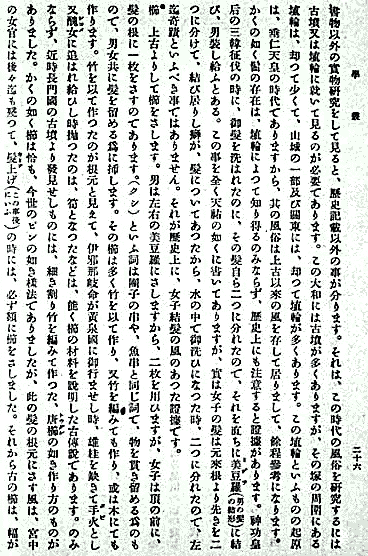 學叢
二十六
書物以外の實物研究をして見ると、歷史記載以外の事が分ります。それは、この時代の風俗を研究するには
古墳又は埴輪に就いて見るのが必要であります。この大和には古墳が多くありますが、その塚の周圍にある
埴輪は、却つて少くて、山城の一部及び關東には、却つて埴輪が多くあります。この埴輪といふものの起原
は、垂仁天皇の時代でありますから、其の風俗は上古以來の風を存して居りまして、餘程參考になります。
かくの如く髷の存在は、埴輪によつて知り得るのみならず、歷史上にも注意すると證據があります。神功皇
后の三韓征伐の時に、御髮を洗はれたのに、その髮自ら二つに分れたので、それを直ちに美豆羅(男の髮の結形)に結
び、男裝し給ふとある。この事を全く天祐の如くに書いてありますが、實は女子の髮は元來根より先きを二
つに分けて、結び居りし癖が、髮についてあつたから、水の中で御洗ひになつた時、二つに分れたので、左
迄奇蹟といふべき事ではありません。それが歷史上に、女子結髮の風のあつた證據です。
櫛 上古よりして櫛をさします。男は左右の美豆羅にさしますから、二枚を用ひますが、女子は頂の前に、
髮の根に一枚をさすのであります。(クシ)といふ詞は團子の串や、魚串と同じ詞で、物を貫き留める爲のも
ので、男女共に髮を留める爲に挿します。その櫛は多く竹を以て作り、又竹を編みても作り、或は木にても
作ります。竹を以て作つたのが根元と見えて、伊邪那岐命が黃泉國に御行ませし時、雄柱を缺きて手火とし
又醜女に追はれ給ひし時拋つたのは、筍となつたなどは、能く櫛の材料を說明した古傳說であります。のみ
ならず、近時長門國の古墳より發見せしものには、細き割り竹を編みて作つた、唐櫛の如き作り方のものが
ありました。かくの如く櫛は恰も、今世のピンの如き樣法でありましたが、此の髮の根元にさす風は、宮中
の女官には後々迄も殘つて、髮上げ の時には、必ず額に櫛をさしました。それから古の櫛は、幅が